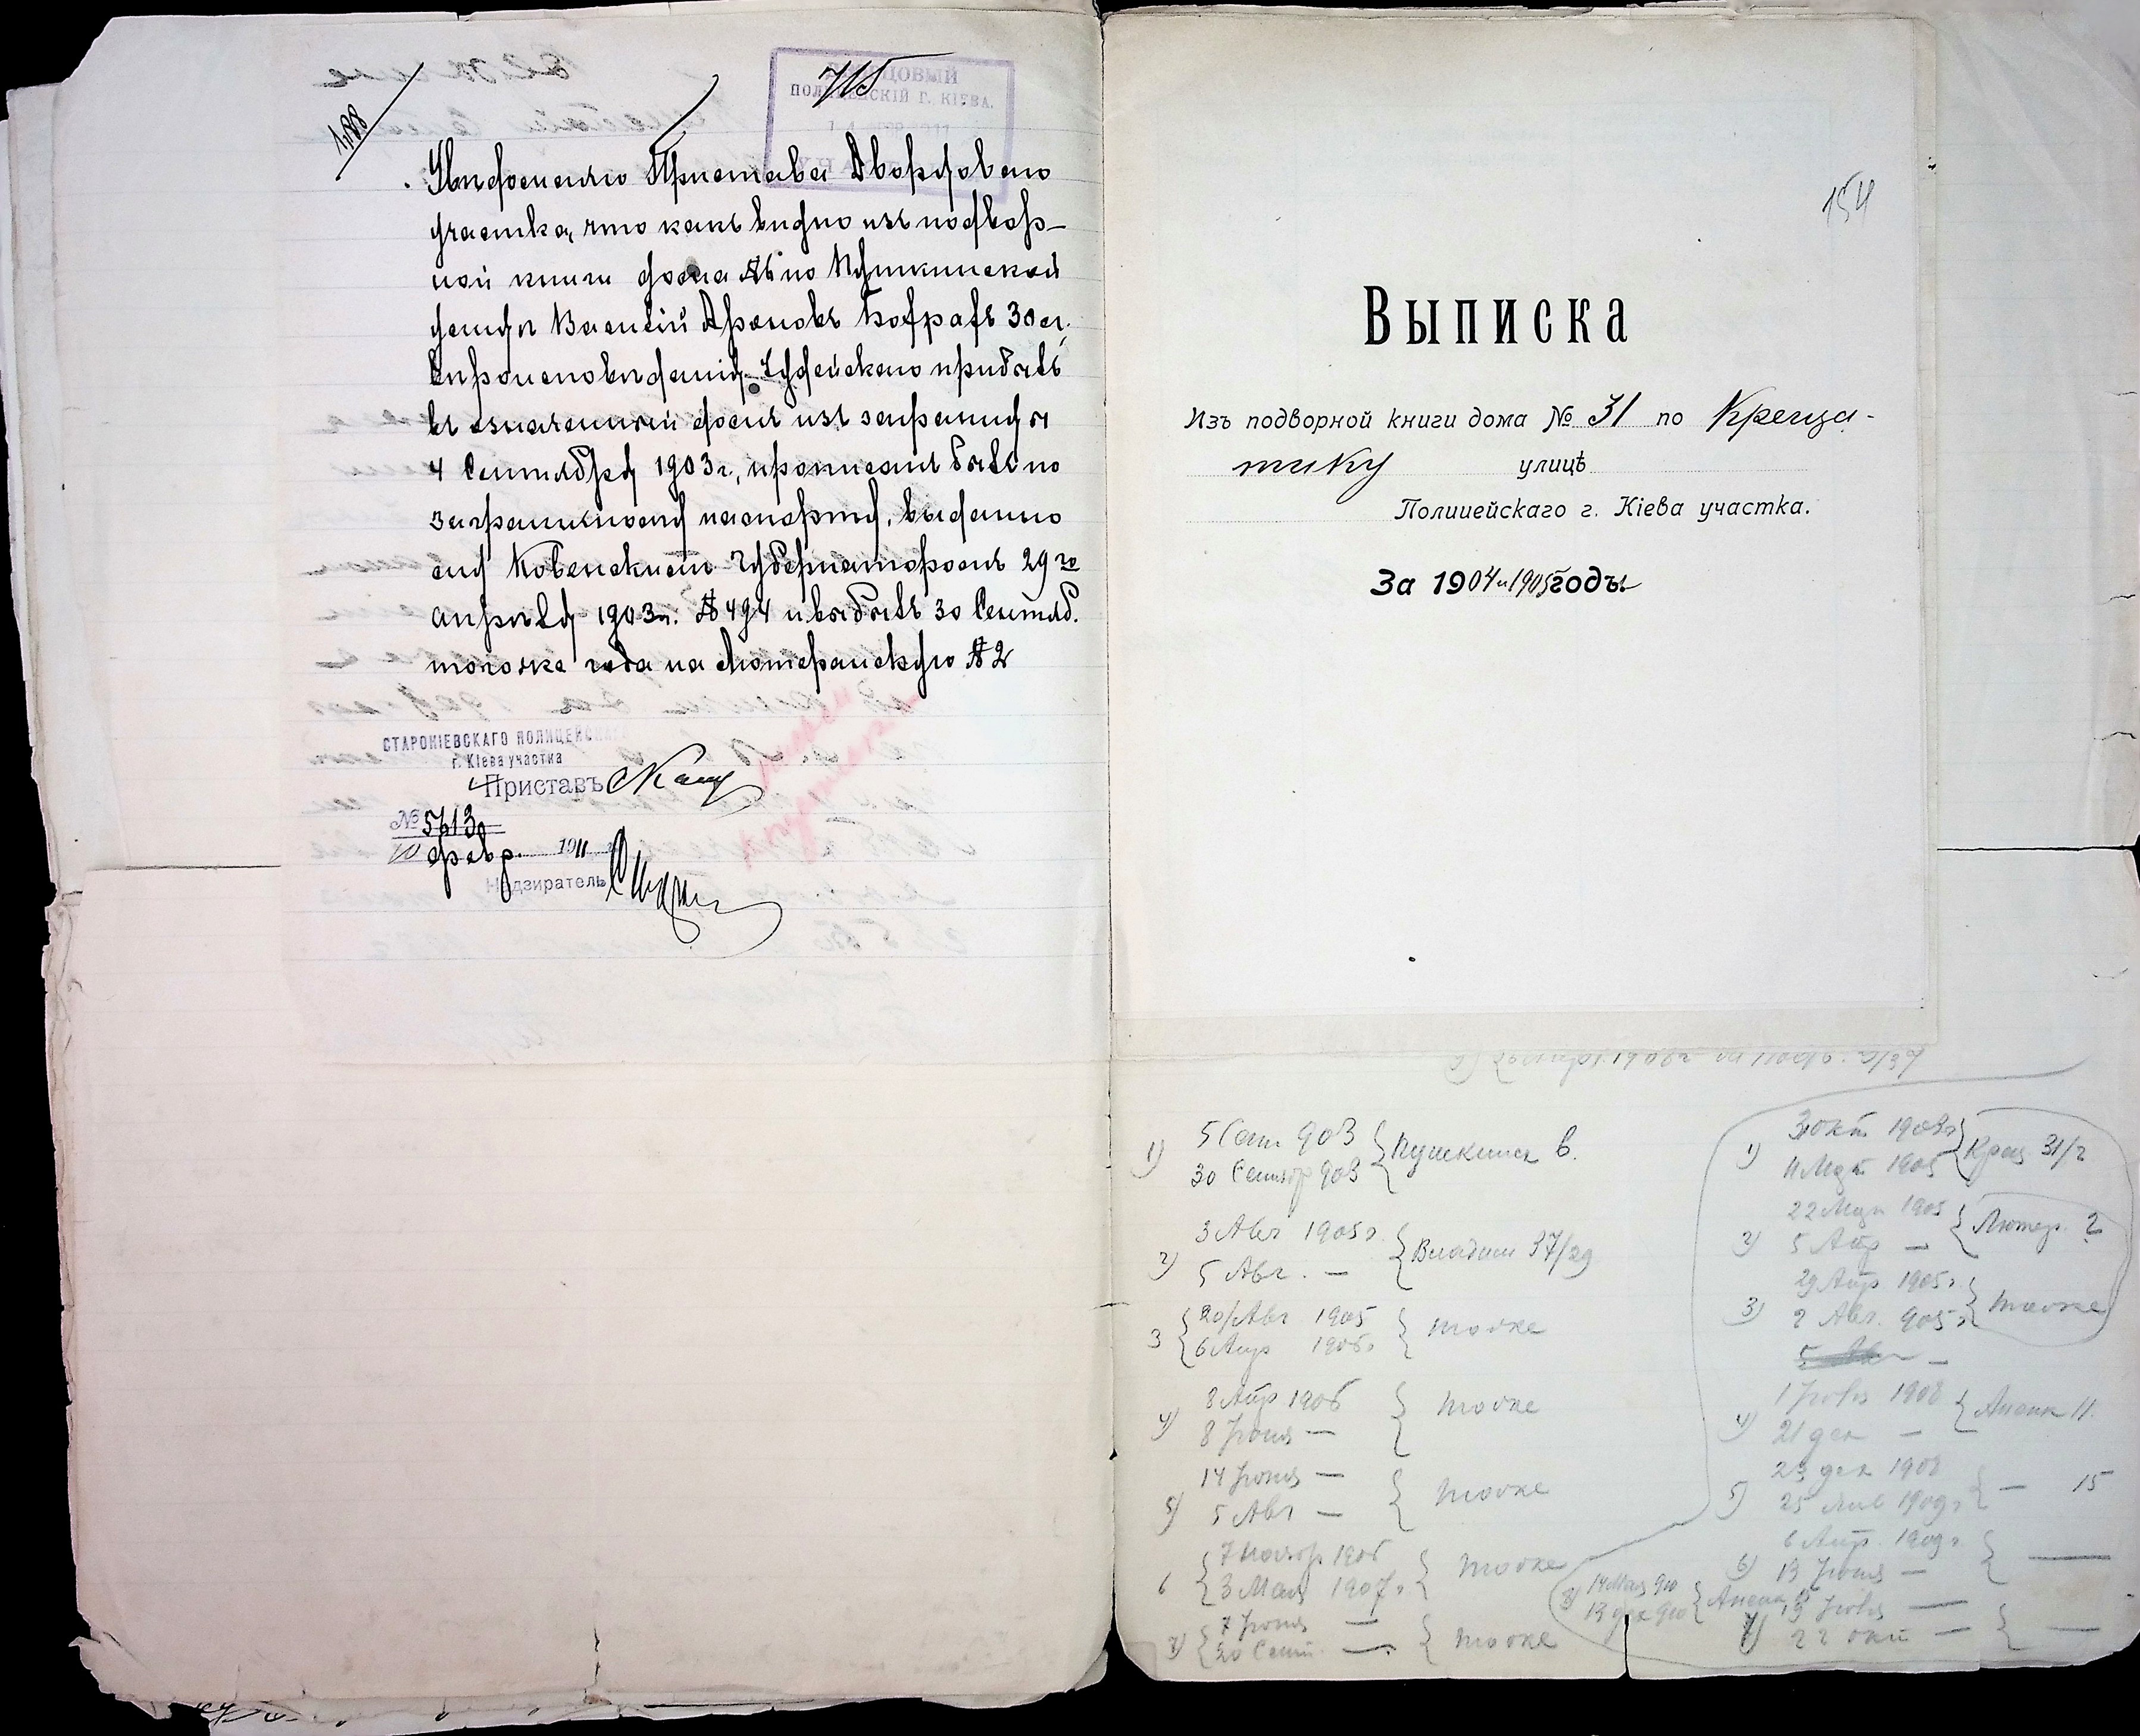 715
1,188
ПОЛИЦЕЙСКІЙ Г. КІЕВА.
Увѣдомляю Пристава Дворцоваго
участка, что какъ видно изъ подвор-
ной книги дома № по Пушкинской
улицѣ Василій Ароновъ 30 л.
вѣроисповѣданія Іудейскаго прибылъ
въ означенный домъ изъ заграницы
4 Сентября 1903 г., прописанъ былъ по
заграничному паспорту, выданно
му Ковенскимъ Губернаторомъ 29 го
апрѣля 1903 г. № 494 и выбылъ 30 Сентяб.
того же года на Лютеранскую № 2
СТАРОКІЕВСКАГО ПОЛИЦЕЙСКАГО
г. Кіева участка
Приставъ
№ 5613
10 февр. 1911 г.
Надзиратель
154
Выписка
Изъ подворной книги дома № 31 по Креща-
тику улицѣ
Полицейскаго г. Кіева участка.
За 1904 и 1905 годы
1) 5 Сент 903
30 Сентяб 903 } Пушкинск 6.
2) 3 Авг 1905 г.
5 Авг. — } Владим 37/29
3 20 Авг 1905
6 Апр 1906 } тоже
4) 8 Апр 1906
8 Іюня — } тоже
5) 14 Іюня —
5 Авг — } тоже
6 7 Ноябр 1906
3 Мая 1907 г. } тоже
7) 7 Іюня —
20 Сент. — } тоже
1)
11 Март 1905 } Крещ 31/2
2) 22 Мар 1905
5 Апр — } Лютер. 2
3) 29 Апр 1905 г.
2 Авг. 905 г. } тоже
4) 1 1908
21 дек — } Аненк 11.
5) 23 дек 1908
25 Янв 1909 г. } — 15
6) 6 Апр. 1909 г.
13 Іюня — } —
8) 14 Мая 910
13 дек 910 } Аненк
7) 13 —
22 окт — } —